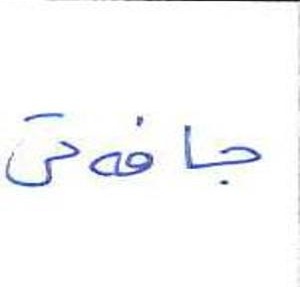 جافەتی